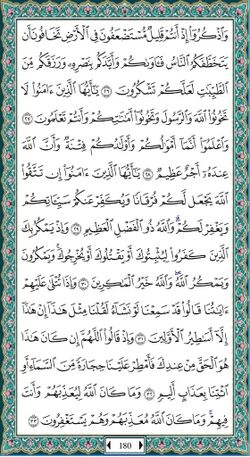 وَاذْكُرُوا إِذْ أَنتُمْ قَلِيلٌ مُّسْتَضْعَفُونَ فِي الْأَرْضِ تَخَافُونَ أَن
يَتَخَطَّفَكُمُ النَّاسُ فَآوَاكُمْ وَأَيَّدَكُم بِنَصْرِهِ وَرَزَقَكُم مِّنَ
الطَّيِّبَاتِ لَعَلَّكُمْ تَشْكُرُونَ ٢٦ يَا أَيُّهَا الَّذِينَ آمَنُوا لَا
تَخُونُوا اللَّهَ وَالرَّسُولَ وَتَخُونُوا أَمَانَاتِكُمْ وَأَنتُمْ تَعْلَمُونَ ٢٧
وَاعْلَمُوا أَنَّمَا أَمْوَالُكُمْ وَأَوْلَادُكُمْ فِتْنَةٌ وَأَنَّ اللَّهَ
عِندَهُ أَجْرٌ عَظِيمٌ ٢٨ يَا أَيُّهَا الَّذِينَ آمَنُوا إِن تَتَّقُوا
اللَّهَ يَجْعَل لَّكُمْ فُرْقَانًا وَيُكَفِّرْ عَنكُمْ سَيِّئَاتِكُمْ
وَيَغْفِرْ لَكُمْ ۗ وَاللَّهُ ذُو الْفَضْلِ الْعَظِيمِ ٢٩ وَإِذْ يَمْكُرُ بِكَ
الَّذِينَ كَفَرُوا لِيُثْبِتُوكَ أَوْ يَقْتُلُوكَ أَوْ يُخْرِجُوكَ ۚ وَيَمْكُرُونَ
وَيَمْكُرُ اللَّهُ ۖ وَاللَّهُ خَيْرُ الْمَاكِرِينَ ٣٠ وَإِذَا تُتْلَىٰ عَلَيْهِمْ
آيَاتُنَا قَالُوا قَدْ سَمِعْنَا لَوْ نَشَاءُ لَقُلْنَا مِثْلَ هَٰذَا ۙ إِنْ هَٰذَا
إِلَّا أَسَاطِيرُ الْأَوَّلِينَ ٣١ وَإِذْ قَالُوا اللَّهُمَّ إِن كَانَ هَٰذَا
هُوَ الْحَقَّ مِنْ عِندِكَ فَأَمْطِرْ عَلَيْنَا حِجَارَةً مِّنَ السَّمَاءِ أَوِ
ائْتِنَا بِعَذَابٍ أَلِيمٍ ٣٢ وَمَا كَانَ اللَّهُ لِيُعَذِّبَهُمْ وَأَنتَ
فِيهِمْ ۚ وَمَا كَانَ اللَّهُ مُعَذِّبَهُمْ وَهُمْ يَسْتَغْفِرُونَ ٣٣
180